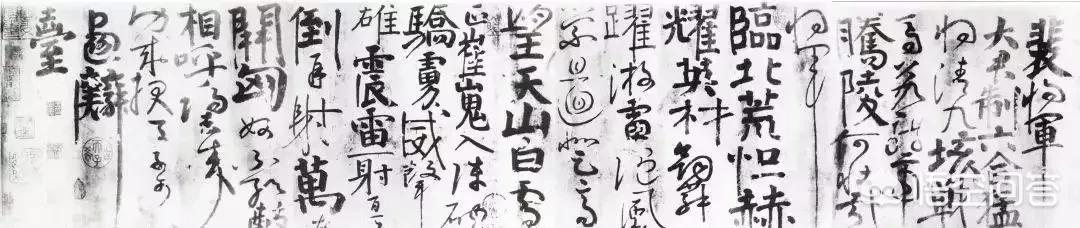 裴将軍
大君制六合猛
将清九垓戰
馬若龍虎
騰陵何壯哉
将軍
臨北荒烜赫
耀英材劔舞
躍游電隨風
縈且迴登高
望天山白雪
正崔嵬入陣破
驕虜威聲
雄震雷一射百馬
倒再射萬夫
開匈奴不敢敵
相呼歸去来
功成報天子可以
畫麟
臺
悟空问答